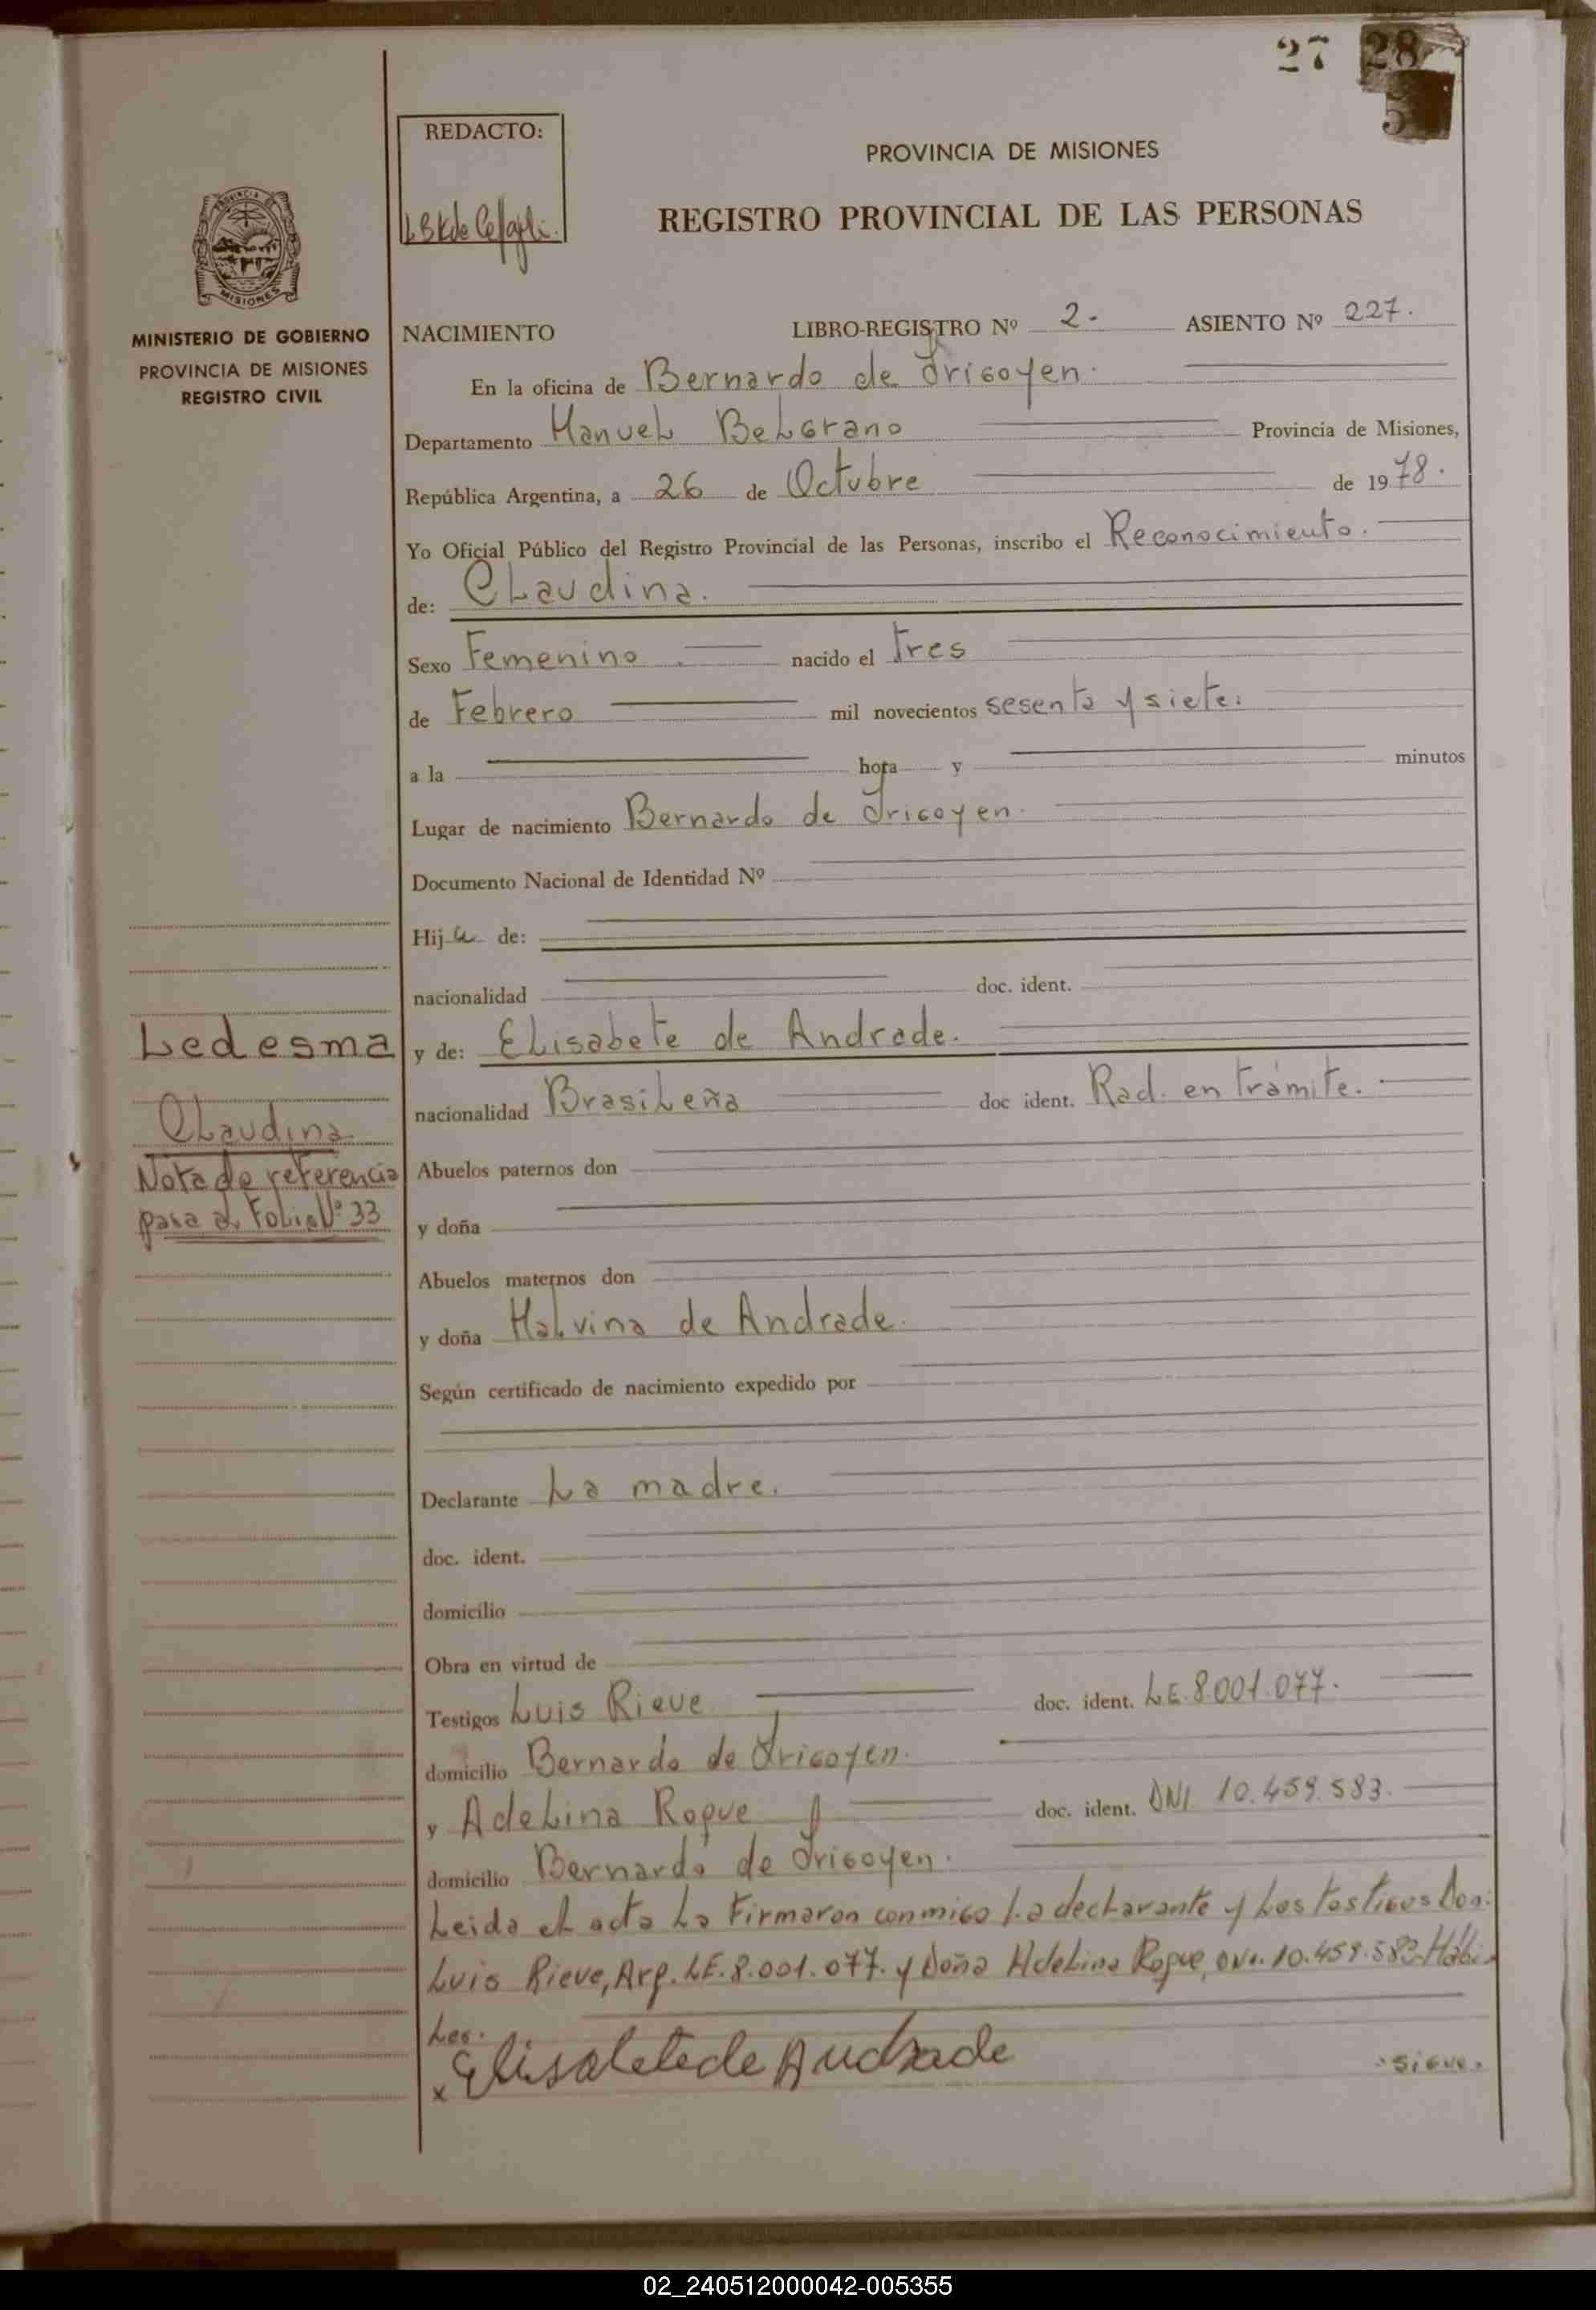 27 28
5
REDACTO:
PROVINCIA DE MISIONES
REGISTRO PROVINCIAL DE LAS PERSONAS
PROVINCIA DE
MISIONES
MINISTERIO DE GOBIERNO
PROVINCIA DE MISIONES
REGISTRO CIVIL
NACIMIENTO LIBRO-REGISTRO Nº 2.- ASIENTO Nº 227.
En la oficina de Bernardo de Irigoyen.
Departamento Manuel Belgrano Provincia de Misiones,
República Argentina, a 26 de Octubre de 1978.
Yo Oficial Público del Registro Provincial de las Personas, inscribo el Reconocimiento.
de: Claudina.
Sexo Femenino. nacido el tres
de Febrero mil novecientos sesenta y siete.
a la hora y minutos
Lugar de nacimiento Bernardo de Irigoyen.
Documento Nacional de Identidad Nº
Hija de:
nacionalidad doc. ident.
Ledesma
y de: Elisabete de Andrade.
Claudina
nacionalidad Brasileña doc ident. Rad. en trámite.
Nota de referencia
para al Folio Nº 33
Abuelos paternos don
y doña
Abuelos maternos don
y doña Malvina de Andrade.
Según certificado de nacimiento expedido por
Declarante La madre.
doc. ident.
domicilio
Obra en virtud de
Testigos Luis Rieve doc. ident. L.E. 8.001.077.
domicilio Bernardo de Irigoyen.
y Adelina Roque doc. ident. DNI 10.459.583.
domicilio Bernardo de Irigoyen.
Leida el acta la Firmaron conmigo la declarante y los testigos Don:
Luis Rieve, Arg. LE. 8.001.077. y Doña Adelina Roque, DNI. 10.459.583. Hábi
les.
x Elisabete de Andrade
.sigue.
02_240512000042-005355